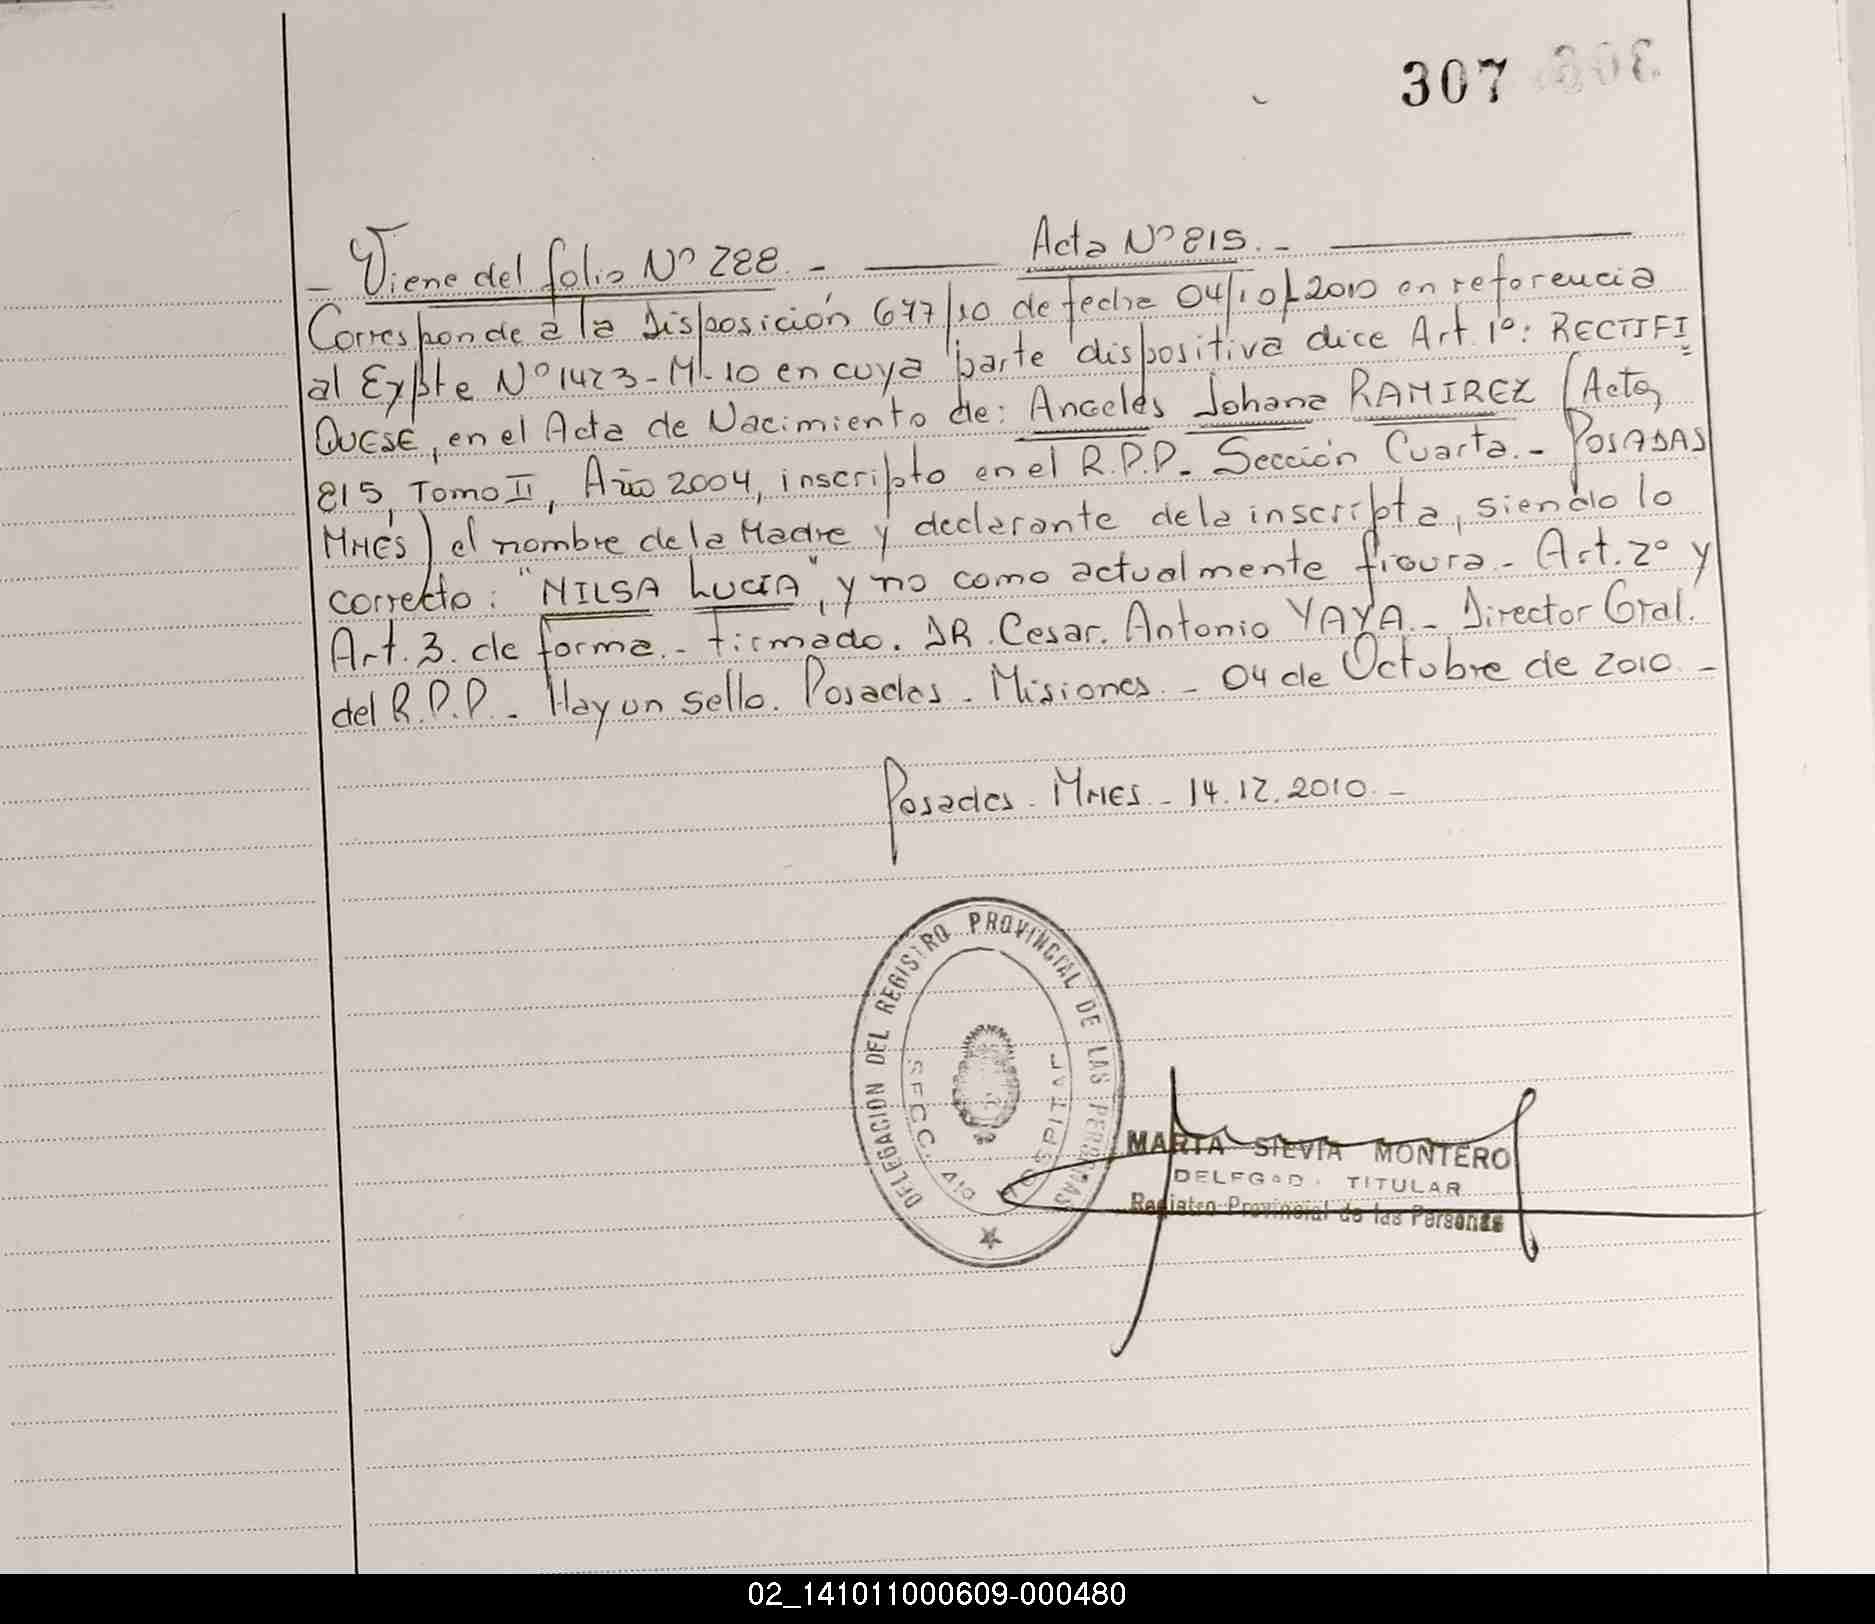 307 306
- Viene del folio Nº 288. - Acta Nº 815. -
Corresponde a la Disposición 677/10 de fecha 04/10/2010 en referencia
al Expte Nº 1473-M-10 en cuya parte dispositiva dice Art. 1º: RECTIFI
QUESE, en el Acta de Nacimiento de: Angeles Johana RAMIREZ (Acta
815, Tomo II, Año 2004, inscripto en el R.P.P. Sección Cuarta. - POSADAS
MNES) el nombre de la Madre y declarante de la inscripta, siendo lo
correcto: "NILSA LUCIA", y no como actualmente figura. Art. 2º y
Art. 3. de forma. - Firmado. DR. Cesar. Antonio YAYA. - Director Gral.
del R.P.P. - Hay un sello. Posadas - Misiones. - 04 de Octubre de 2010. -
Posadas. MNES. - 14.12.2010. -
DELEGACION DEL REGISTRO PROVINCIAL DE LAS PERSONAS
SECC. 4ta CAPITAL
MARTA SILVIA MONTERO
DELEGAD. TITULAR
Registro Provincial de las Personas
02_141011000609-000480